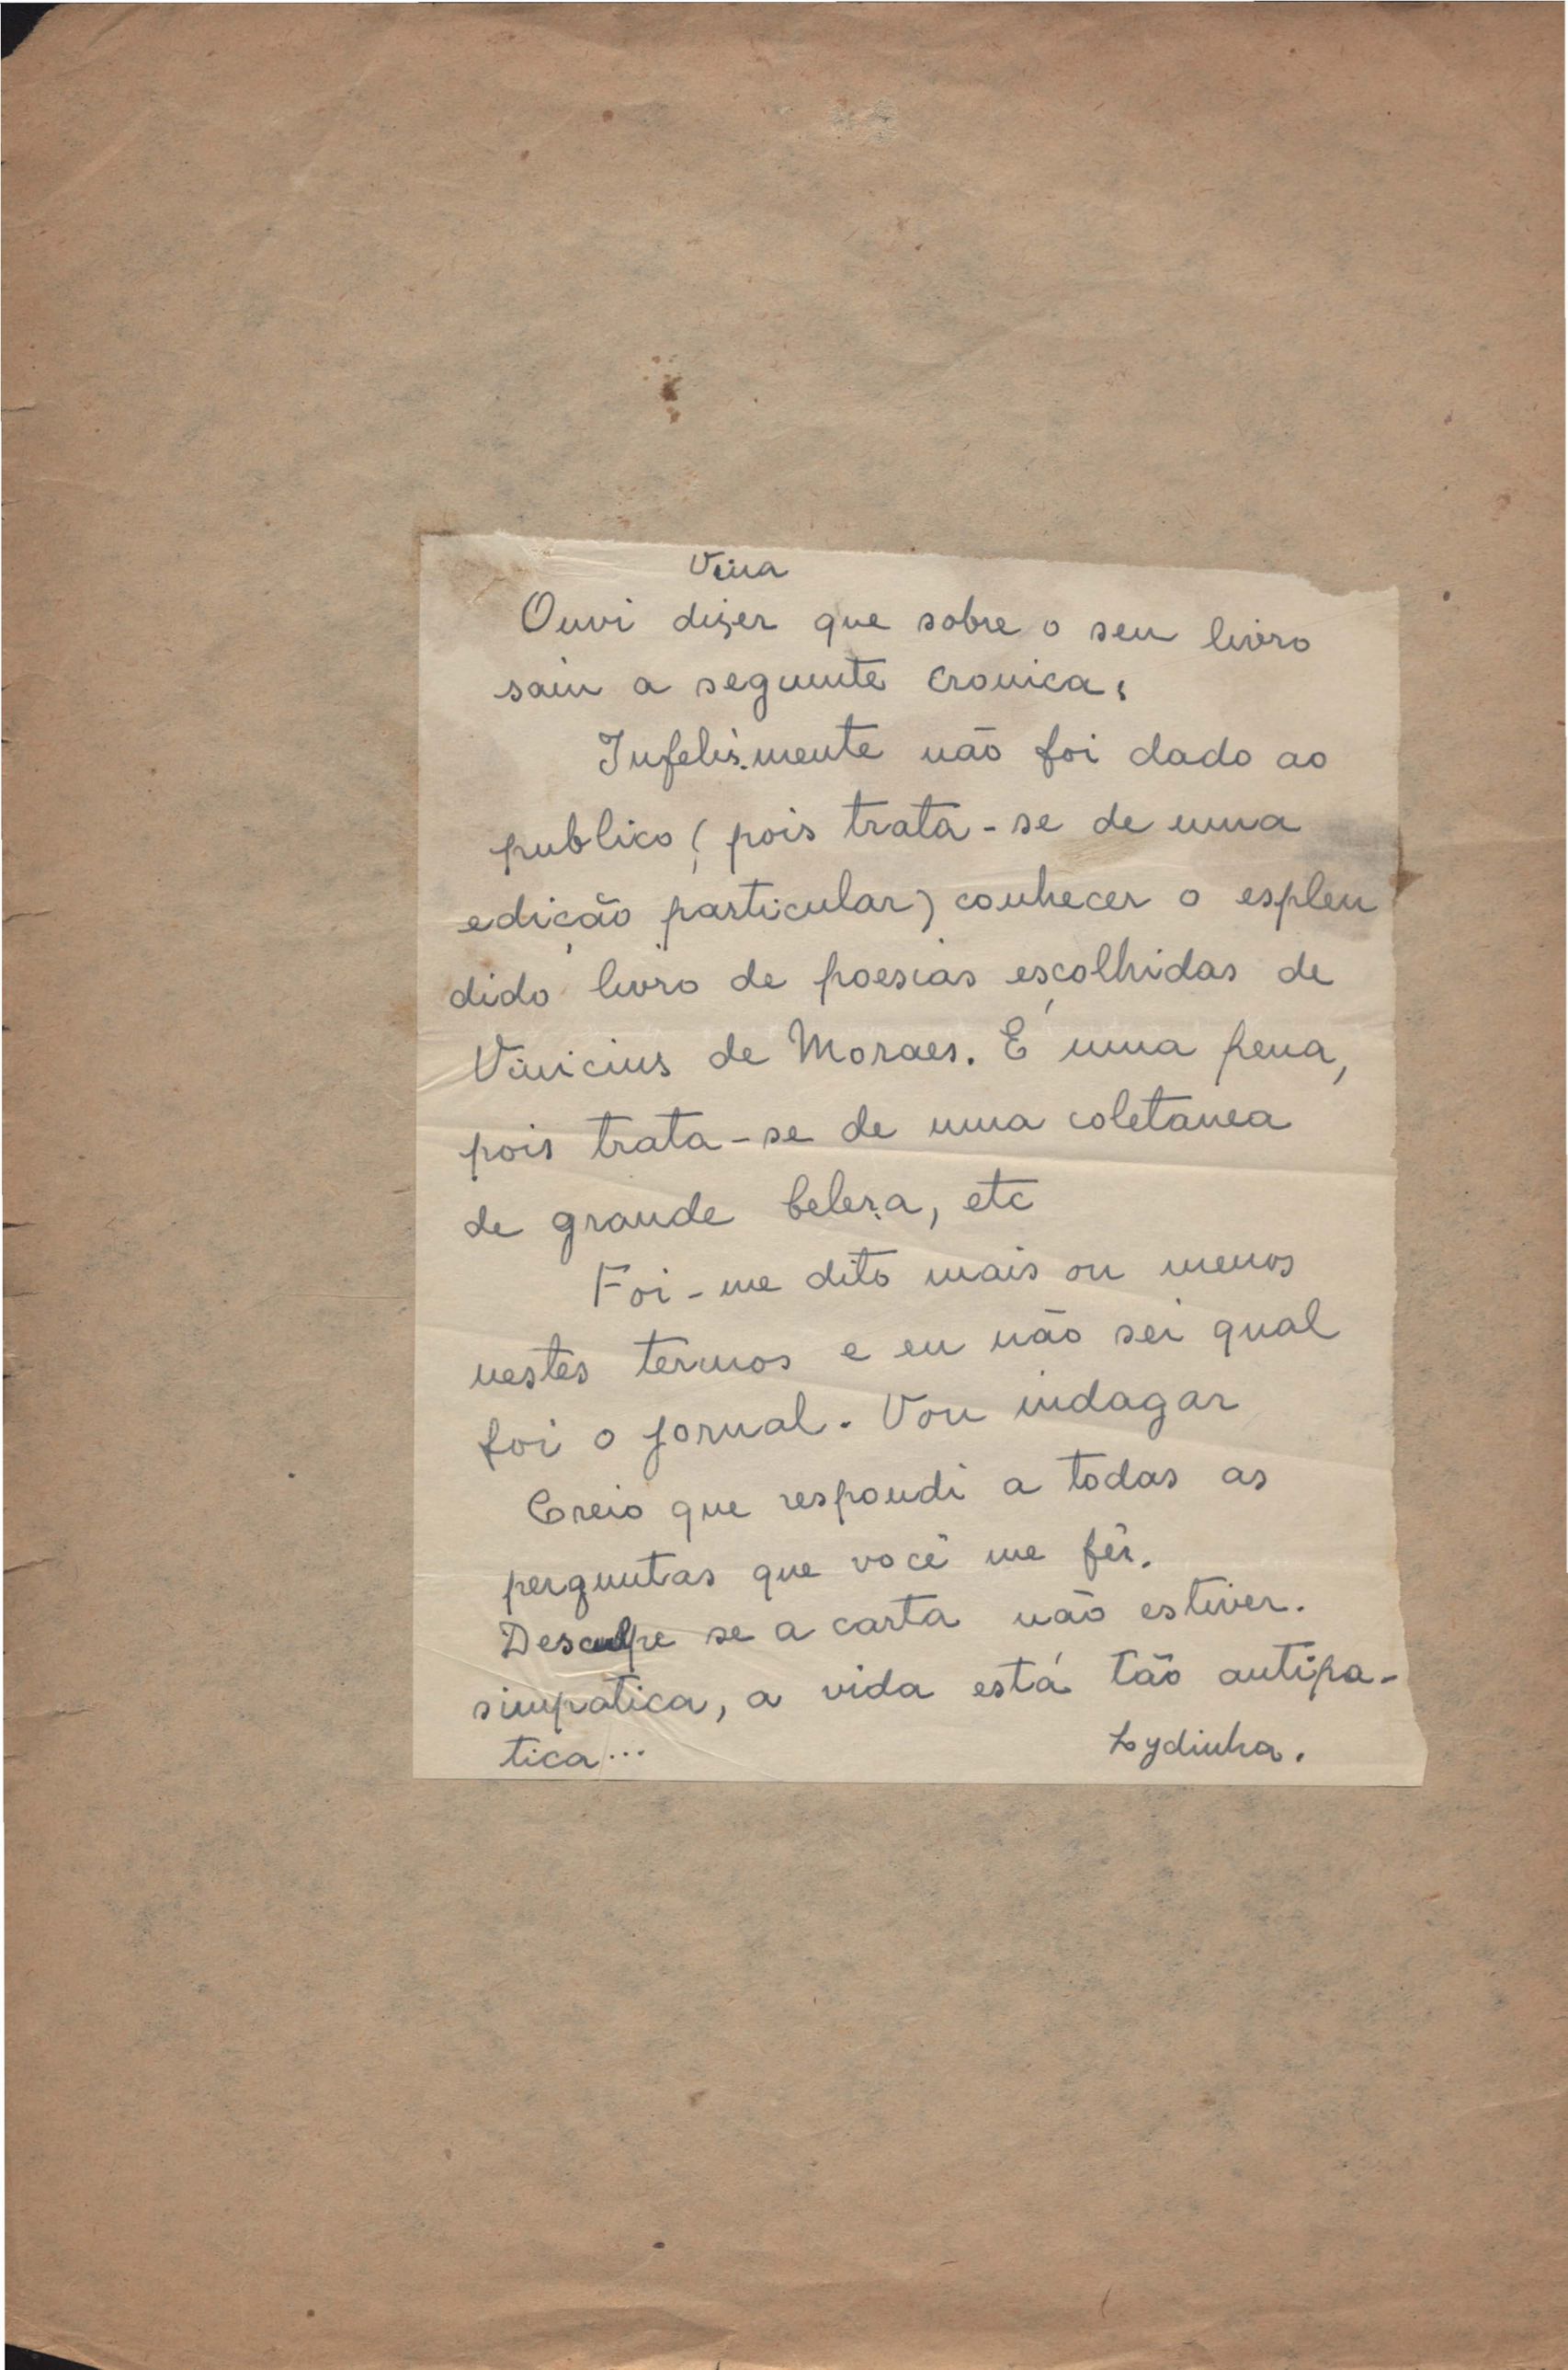 Vina
Ouvi dizer que sobre o seu livro
saiu a seguinte cronica:
Infelizmente não foi dado ao
publico (pois trata-se de uma
edição particular) conhecer o esplen
dido livro de poesias escolhidas de
Vinicius de Moraes. É uma pena,
pois trata-se de uma coletanea
de grande beleza, etc
Foi-me dito mais ou menos
nestes termos e eu não sei qual
foi o jornal. Vou indagar
Creio que respondi a todas as
perguntas que você me fêz.
Desculpe se a carta não estiver.
simpatica, a vida está tão antipa-
tica...
Lydinha.